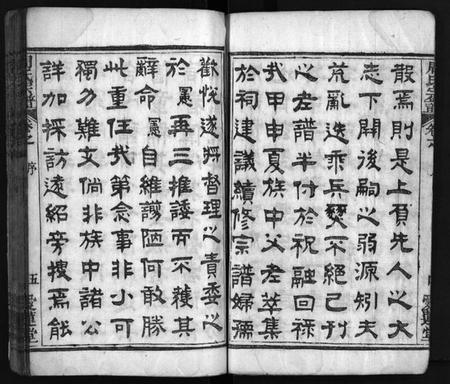 散焉則是上負先人之大
志下開後嗣之弱源矧夫
荒亂迭乘兵燹不絕已刊
之老譜半付於祝融回祿
我甲申夏族中父老萃集
於祠建議續修宗譜婦孺
歡悅遂將督理之責委之
於憲再三推諉而不獲其
辭命憲自維謭陋何敢勝
此重任哉第念事非小可
獨力難支倘非族中諸公
詳加採訪遠紹旁搜焉能
周氏宗譜 卷之 序 五 愛蓮堂